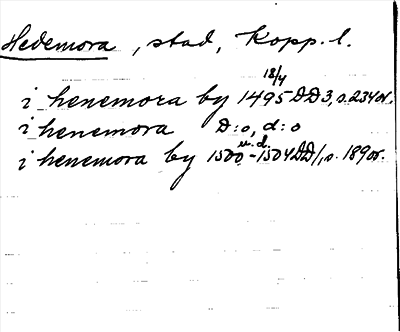 Hedemora, stad, Kopp. l.
18/4
i henemora by 1495 DD3, s. 234 or.
i henemora D:o, d:o
u.d.
i henemora by 1500-1504 DD1, s. 189 or.